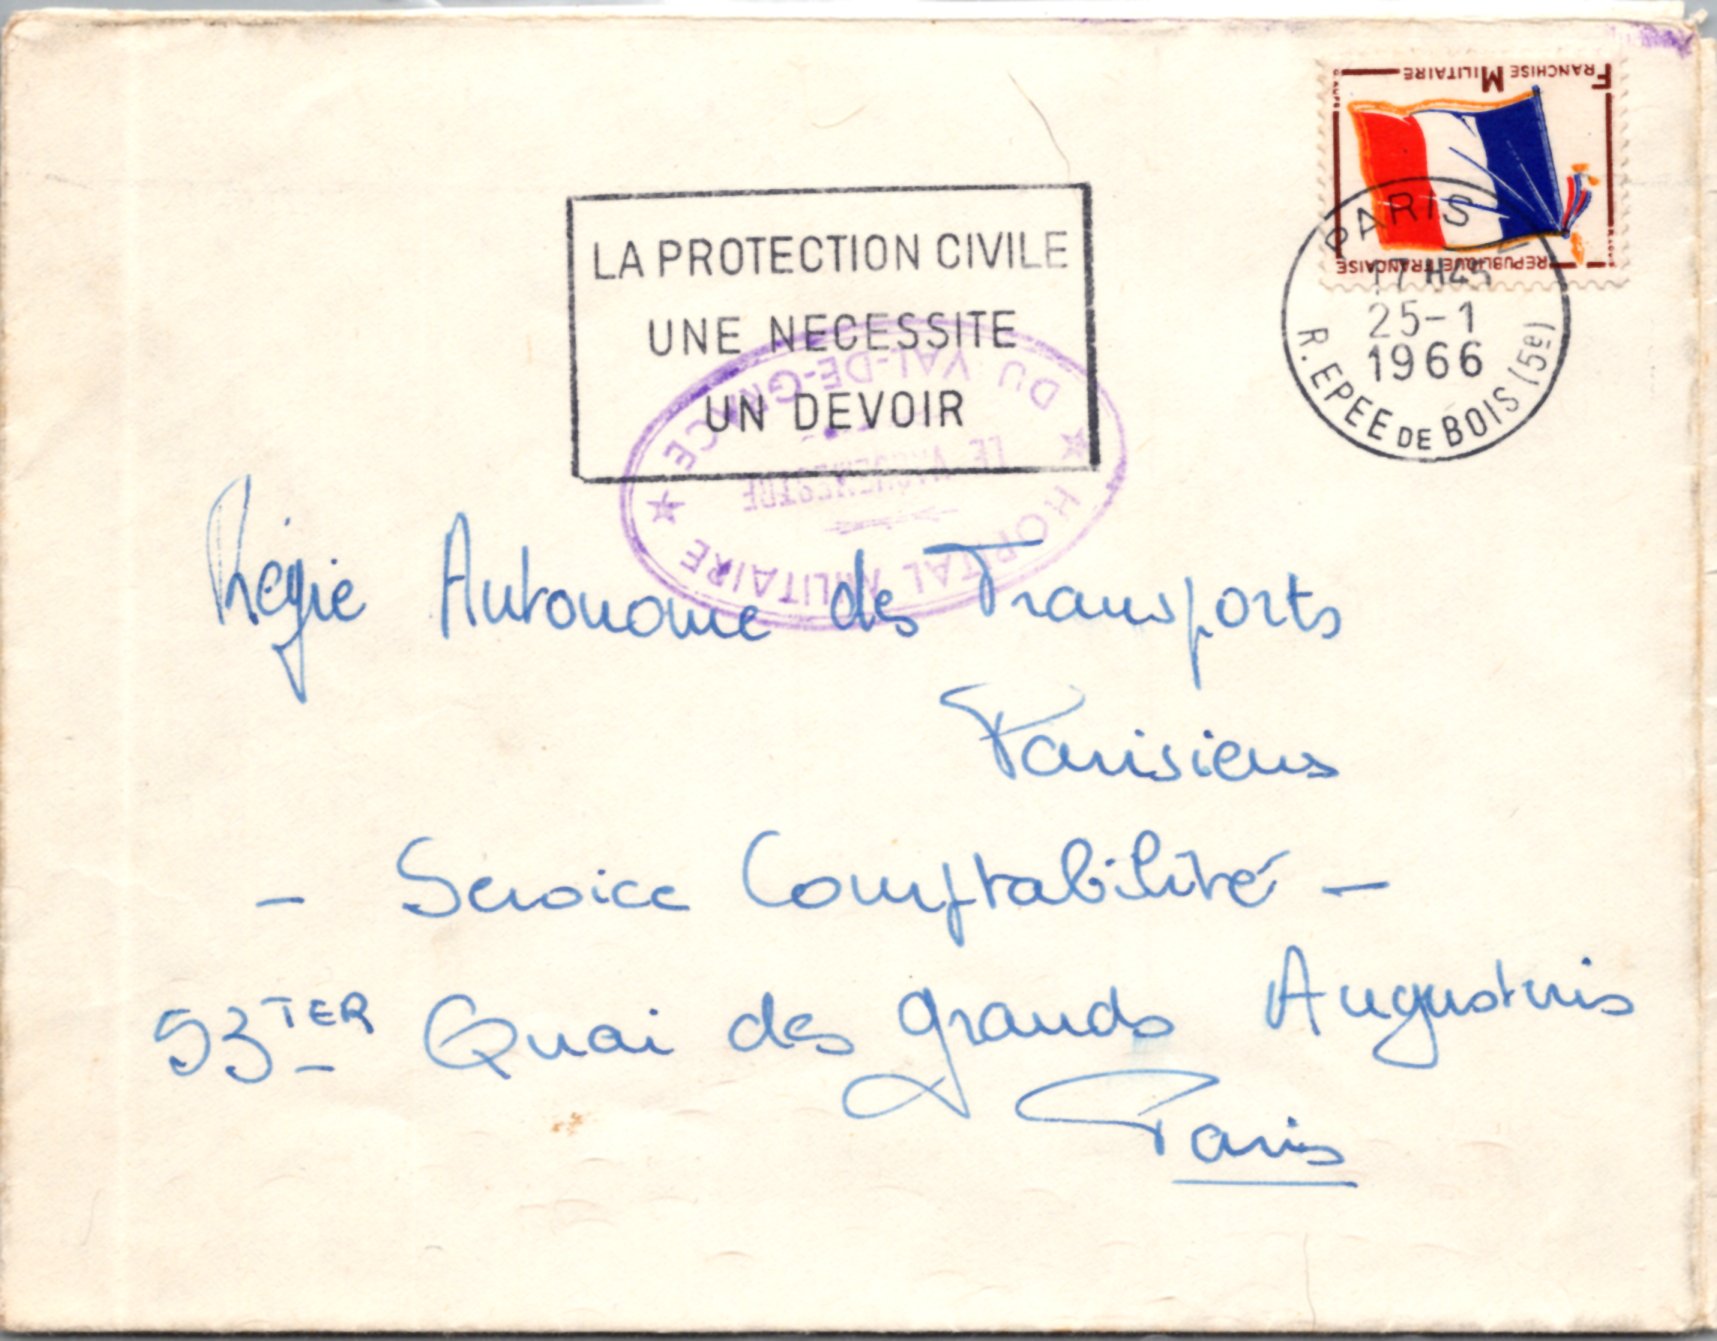 FRANCHISE MILITAIRE
REPUBLIQUE FRANÇAISE
PARIS
17H45
25-1
1966
R. EPEE DE BOIS (5e)
LA PROTECTION CIVILE
UNE NECESSITE
UN DEVOIR
★ HOPITAL MILITAIRE ★
DU VAL-DE-GRACE
LE VAGUEMESTRE
Régie Autonome des Transports
Parisiens
- Service Comptabilité -
53 TER Quai des grands Augustins
Paris